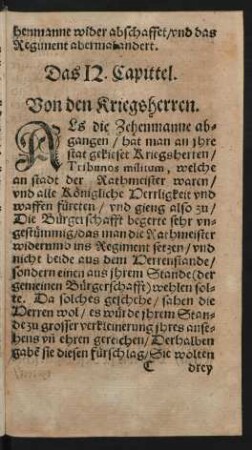 henmanne wider abschaffet/vnd das
Regiment abermal andert.
Das 12. Capittel.
Von den Kriegsherren.
ALs die Zehenmanne ab-
gangen / hat man an jhre
stat gekieset Kriegsherren /
Tribunos militum, welche
an stadt der Rathmeister waren /
vnd alle Königliche Herrligkeit vnd
waffen füreten / vnd gieng also zu /
Die Bürgerschafft begerte sehr vn-
gestümmig / das man die Rathmeister
widerumb ins Regiment setzen / vnd
nicht beide aus dem Herrenstande /
sondern einen aus jhrem Stande (der
gemeinen Bürgerschafft) wehlen sol-
te. Da solches geschehe / sahen die
Herren wol / es würde jhrem Stan-
de zu grosser verkleinerung jhres anse-
hens vñ ehren gereichen / Derhalben
gabē sie diesen fürschlag / Sie wolten
C drey